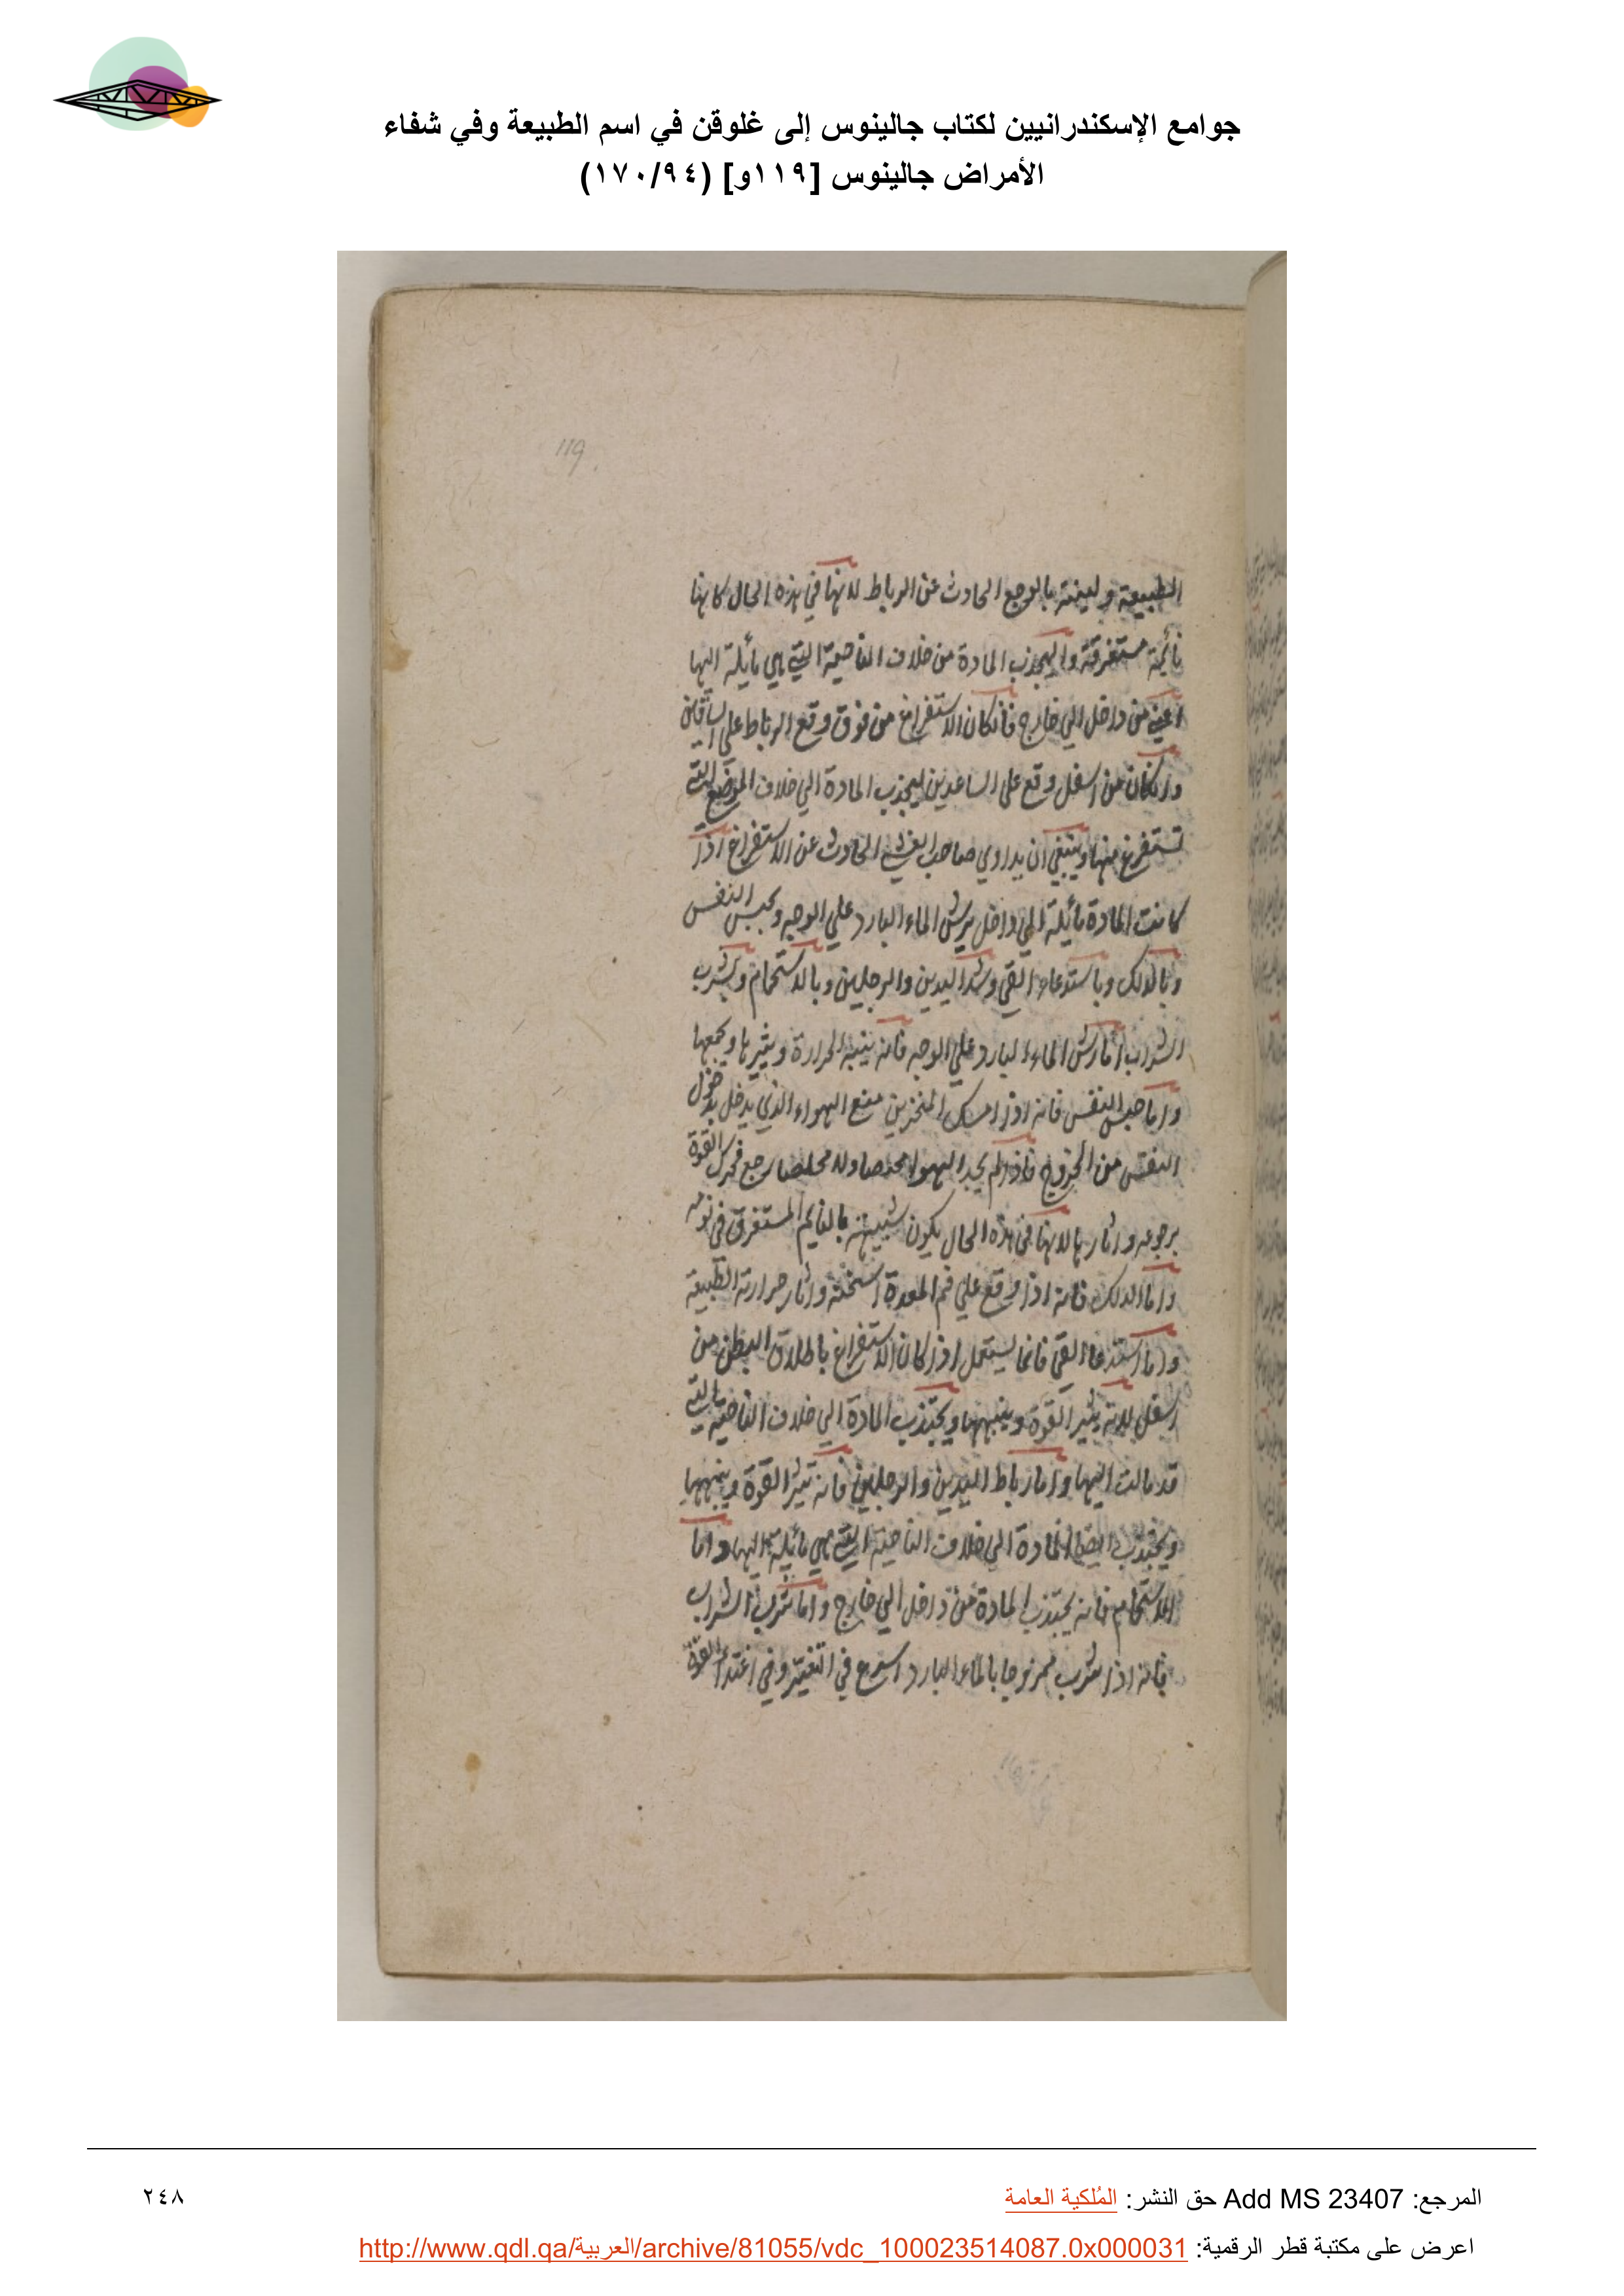 جوامع الإسكندرانيين لكتاب جالينوس إلى غلوقن في اسم الطبيعة وفي شفاء
الأمراض جالينوس [١١٩و] (١٧٠/٩٤)
119
الطبيعة ولينته بالوجع الحادث عن الرباط لانها في هذه الحال كانها
نائمة مستغرقة واليجذب المادة من خلاف الناحية التي هي مائلة اليها
اعني من داخل الي خارج فانكان الاستفراغ من فوق وقع الرباط علي الساقين
وانكان من اسفل وقع علي الساعدين ليجذب المادة الي خلاف الموضع التي
تستفرغ منها وينبغي ان يداوي صاحب الغشي الحادث عن الاستفراغ اذا
كانت المادة مائلة الي داخل برش الماء البارد علي الوجه وبحبس النفس
وبالدلك وباستدعاء القي وشد اليدين والرجلين وبالاستحمام وبشرب
الشراب اما رش الماء البارد علي الوجه فانه ينبه الحرارة ويثيرها ويجمعها
واما حبس النفس فانه اذا امسك المنخرين منع الهواء الذي يدخل بدخول
النفس من الخروج فاذا لم يجد الهوا مخلصا رجع فحرك القوة
برجوعه واثارها لانها في هذه الحال يكون شبيهة بالنايم المستغرق في نومه
واما الدلك فانه اذا وقع علي فم المعدة اسخنه واثار حرارته الطبيعة
واما استدعا القي فانما يستعمل اذا كان الاستفراغ باطلاق البطن من
اسفل لانه يثير القوة وينبهها ويجتذب المادة الي خلاف الناحية التي
قد مالت اليها واما رباط اليدين والرجلين فانه تثير القوة وينبهها
ويجتذب ايضا المادة الي خلاف الناحية التي هي مائلة اليها واما
الاستحمام فانه يجتذب المادة من داخل الي خارج واما شرب الشراب
فانه اذا شرب ممزوجا بالماء البارد اسرع في التغير وفي اغتذا القوة
المرجع: Add MS 23407 حق النشر: المُلكية العامة
٢٤٨
اعرض على مكتبة قطر الرقمية: http://www.qdl.qa/العربية/archive/81055/vdc_100023514087.0x000031